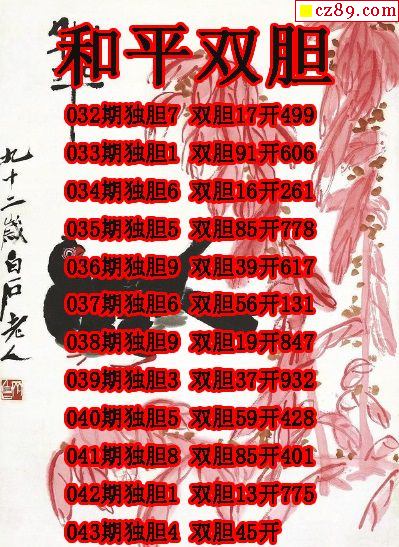 cz89.com
和平双胆
032期独胆7 双胆17开499
033期独胆1 双胆91开606
034期独胆6 双胆16开261
035期独胆5 双胆85开778
036期独胆9 双胆39开617
037期独胆6 双胆56开131
038期独胆9 双胆19开847
039期独胆3 双胆37开932
040期独胆5 双胆59开428
041期独胆8 双胆85开401
042期独胆1 双胆13开775
043期独胆4 双胆45开
九十二岁白石老人